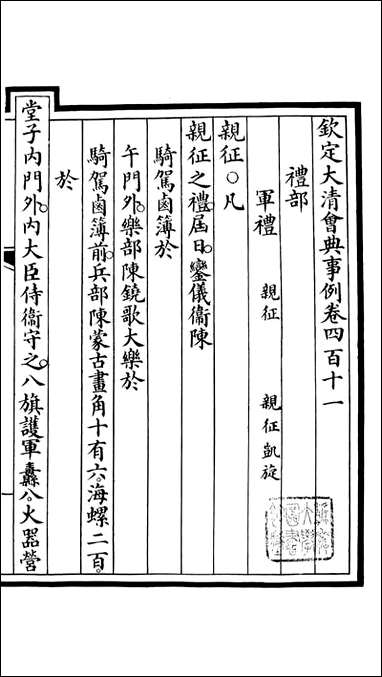 欽定大清會典事例卷四百十一
禮部
軍禮　親征　親征凱旋
親征○凡
親征之禮屆日鑾儀衞陳
騎駕鹵簿於
午門外樂部陳鐃歌大樂於
騎駕鹵簿前兵部陳蒙古畫角十有六海螺二百
於
堂子內門外內大臣侍衞守之八旗護軍纛八火器營